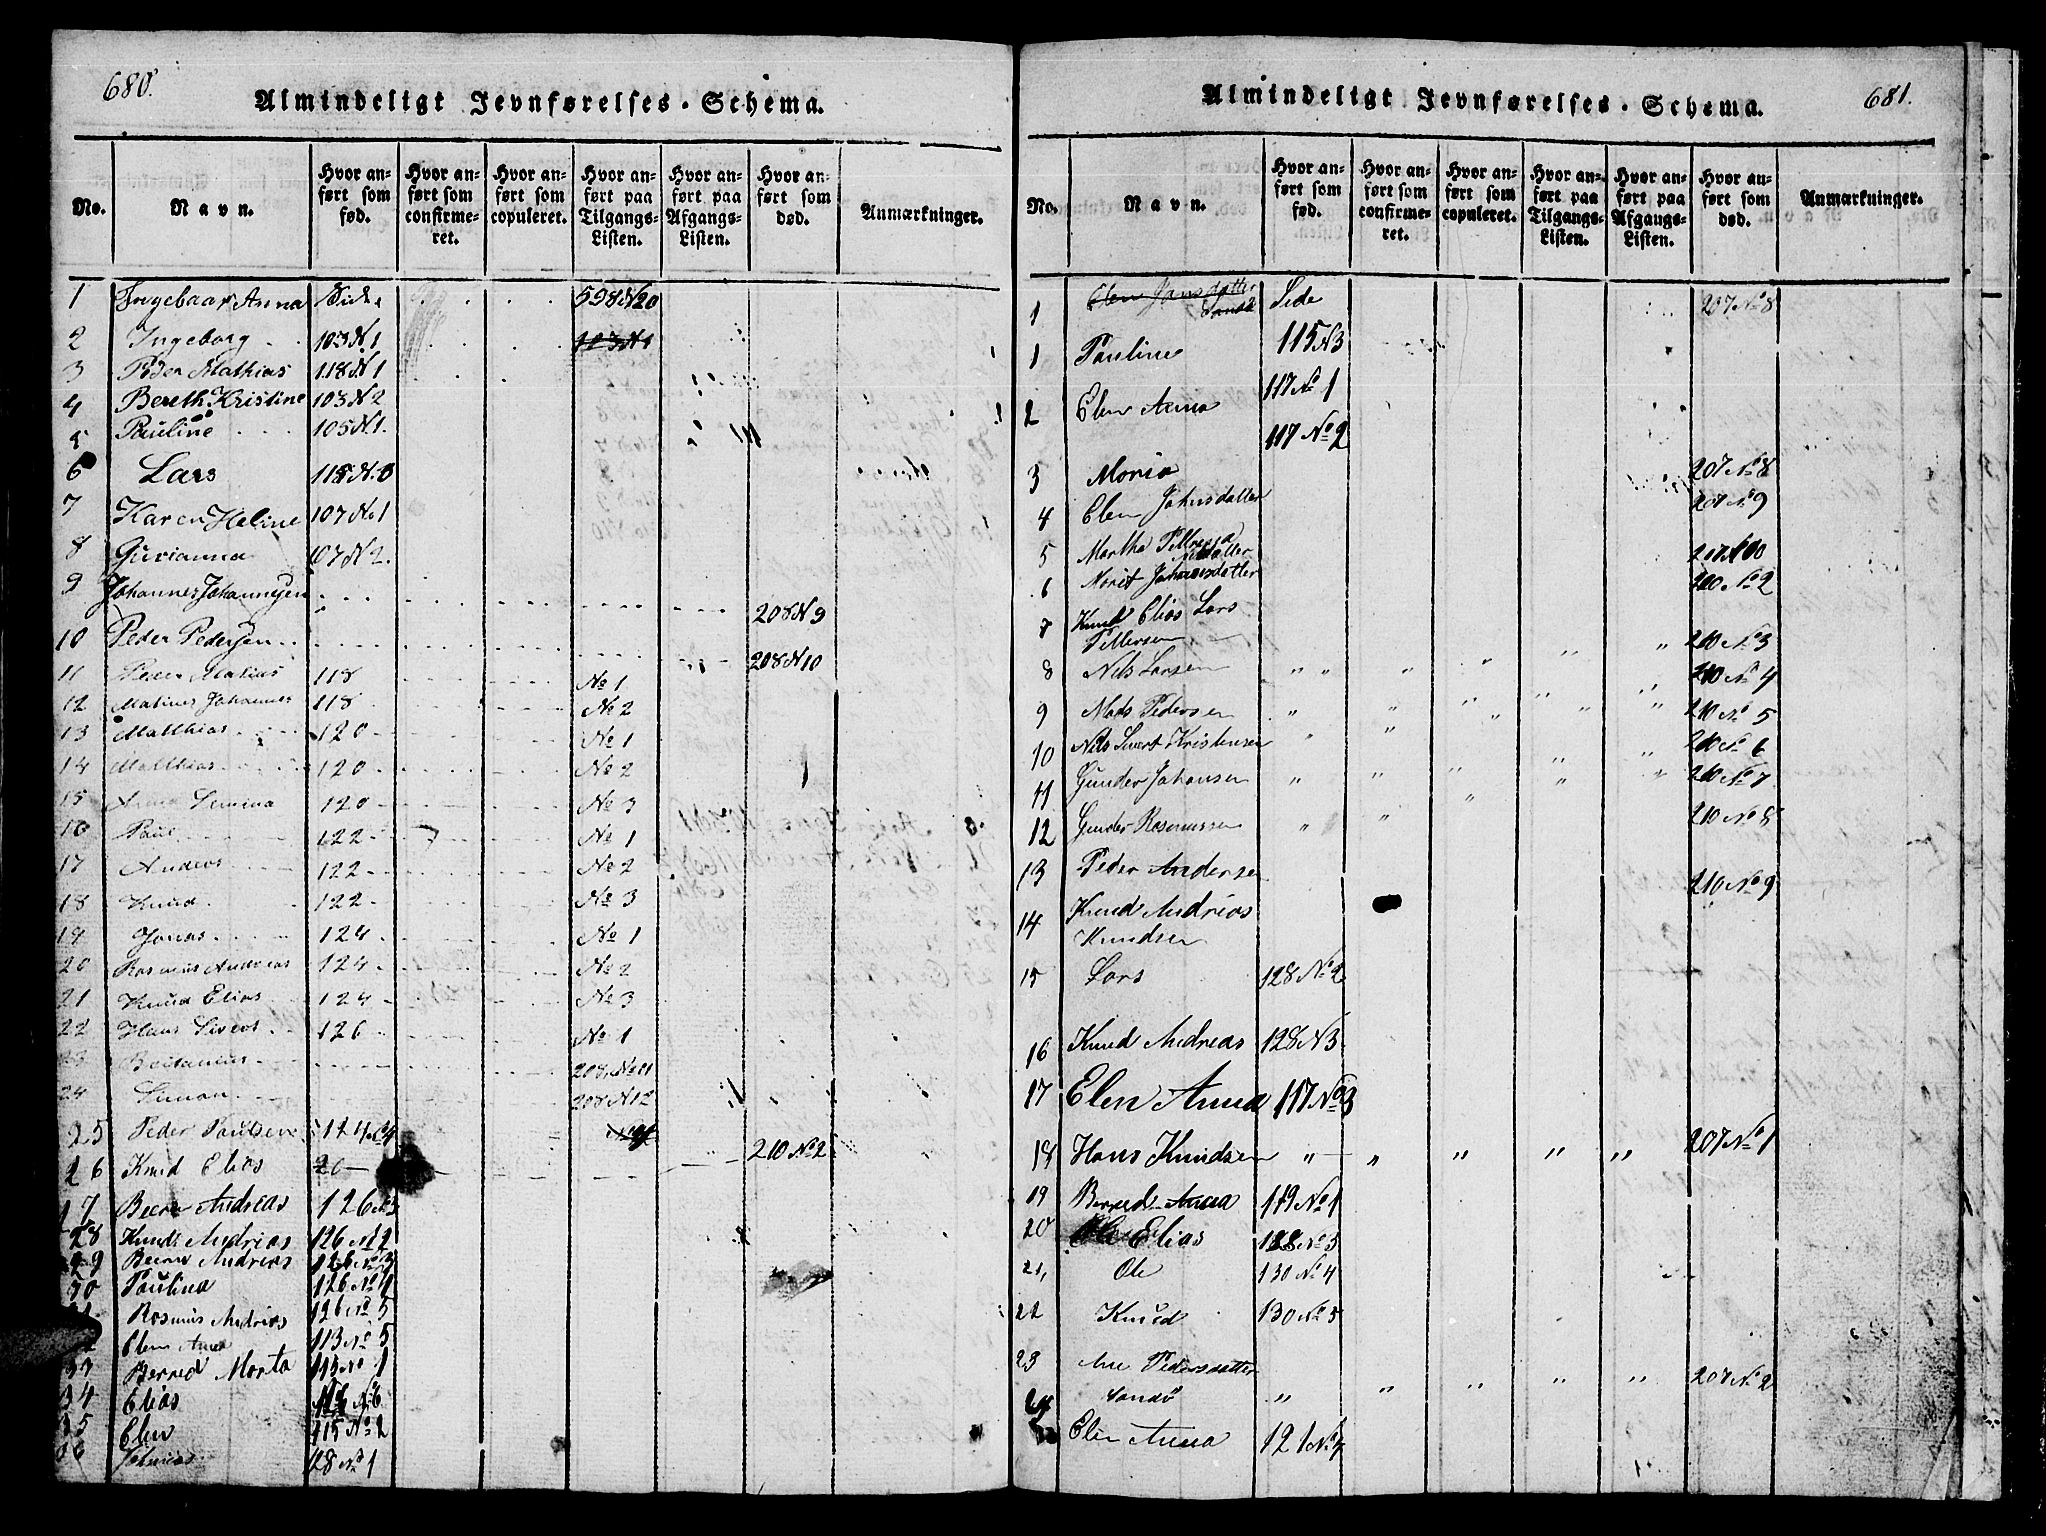 680.
Almindeligt Jevnførelses-Schema.
No.
Navn.
Hvor anført som fød.
Hvor anført som confirmeret.
Hvor anført som copuleret.
Hvor anført paa Tilgangs-Listen.
Hvor anført paa Afgangs-Listen.
Hvor anført som død.
Anmærkninger.
1 Ingebaar Anna Side 598 N20
2 Ingeborg 103 N1 103 N1
3 Peder Mathias 118 N1
4 Bereth Kristine 103 N2
5 Pauline 105 N1.
6 Lars
7 Karen Heline 107 No 1
8 Gurianna 107 N2.
9 Johannes Johannesen 208 N9
10 Peder Pedersen 208 N10
11 Peder Matias 118 No 1
12 Matinus Johannes 118 No 2
13 Matthias 120 No 1
14 Matthias 120 No 2
15 Anna Semina 120 No 3
16 Paul 122 No 1
17 Andeas 122 No 2
18 Knud 122 No 3
19 Jonas 124 No 1
20 Rasmus Andreas 124 No 2
21 Knud Elias 124 No 3
22 Hans Siveos 126 No 1
23 208, No 11
24 Simon 208 N12
25 Peder Paulsen 124 No 4
26 Knud Elias 210 No 2
27 Andreas 126 No 3
28 Knud Andrias 126 No 2
29 Andreas 126 No 3
30 Paulina 126 No 4
Rasmus Andrias 126 No 5
Elen Anna 113 No 5
33 Berred Marta 113 No 1
34 Elias
35 Elen 115 No 2
128 No 1
Almindeligt Jevnførelses-Schema.
681.
No.
Navn.
Hvor anført som fød.
Hvor anført som confirmeret.
Hvor anført som copuleret.
Hvor anført paa Tilgangs-Listen.
Hvor anført paa Afgangs-Listen.
Hvor anført som død.
Anmærkninger.
1 Elen Jansdatter Side 207 No 8
1 Pauline 115 N3
2 Elen Anna 117 No 1
117 No 2
3 Maria 207 No 8
4 Elen Jahnsdatter 207 No 9
5 Martha
6 Marit Jahansdatter No 2
7 Knud Elias Lars
Pettersen 210 No 3
8 Nils Larsen " " " " " " 210 No 4
9 Mads Pedersen " " " " " 210 No 5
10 Nils Sivert Kristensen " " " 210 No 6
11 Gunder Johansen " " " " " 210 No 7
12 Gunder Rasmussen " " " " 210 No 8
13 Peder Andersen 210 No 9
14 Knud Andrias
Knudsen
15 Lars 128 No 2
16 Knud Andreas 128 N3
17 Elen Anna 117 No 3
18 Hans Knudsen " " " " " 207 No 1
19 Berred Anna 119 No 1
20 Ole Elias No 3
21, Ole 130 No 4
22 Knud 130 No 5
23 Ane Pedersdatter 207 No 2
24 Sandø " " " " "
Elen Anna 121 No 4